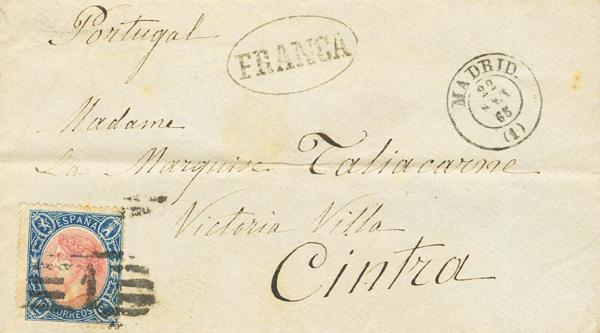 Portugal
FRANCA
MADRID.
22
65
(1)
Madame
La Marquise Taliacarne
Victoria Villa
Cintra
ESPAÑA
CORREOS
1